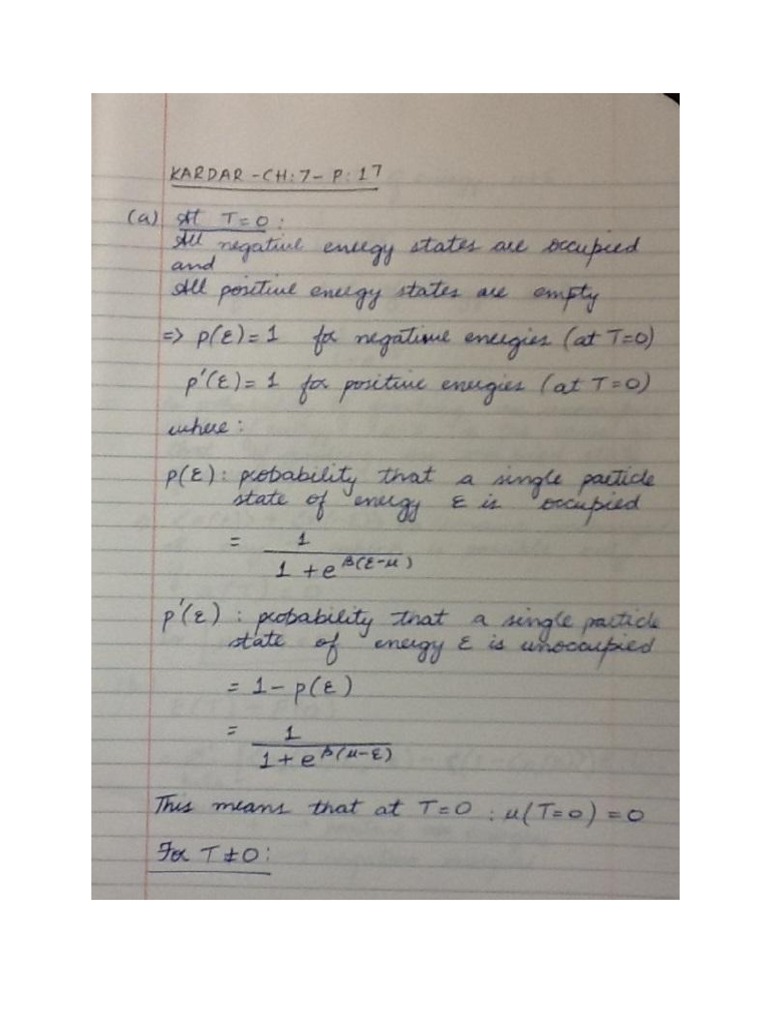 KARDAR - CH:7 - P:17
(a) At T=0:
All negative energy states are occupied
and
All positive energy states are empty
=> p(ε)=1 for negative energies (at T=0)
p'(ε)=1 for positive energies (at T=0)
where:
p(ε): probability that a single particle
state of energy ε is occupied
= 1 / (1+e^β(ε-μ))
p'(ε): probability that a single particle
state of energy ε is unoccupied
= 1 - p(ε)
= 1 / (1+e^β(μ-ε))
This means that at T=0 : μ(T=0) = 0
For T≠0: